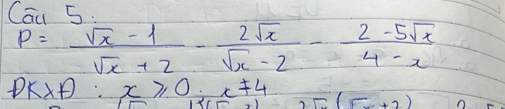 Câu 5:
P = (√x - 1)/(√x + 2) - (2√x)/(√x - 2) - (2 - 5√x)/(4 - x)
ĐKXĐ : x ≥ 0. x ≠ 4